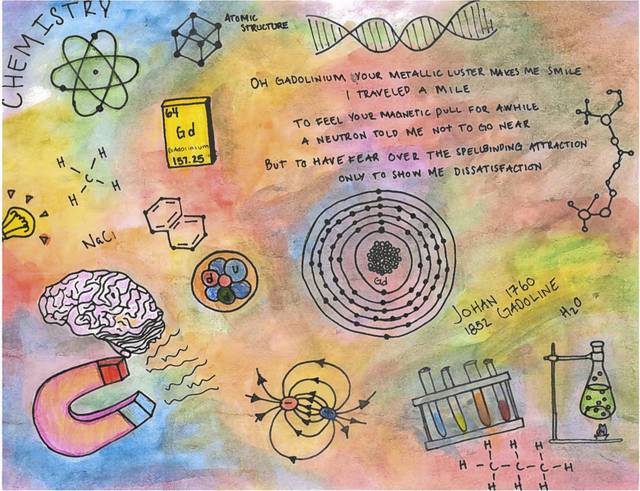 CHEMISTRY
ATOMIC
STRUCTURE
OH GADOLINIUM YOUR METALLIC LUSTER MAKES ME SMILE
I TRAVELED A MILE
TO FEEL YOUR MAGNETIC PULL FOR AWHILE
A NEUTRON TOLD ME NOT TO GO NEAR
BUT TO HAVE FEAR OVER THE SPELLBINDING ATTRACTION
ONLY TO SHOW ME DISSATISFACTION
64
Gd
GADOLINIUM
157.25
H H
C
H H
NaCl
U
d
Gd
JOHAN 1760
1852 GADOLINE
H2O
H H H
H - C - C - C - H
H H H